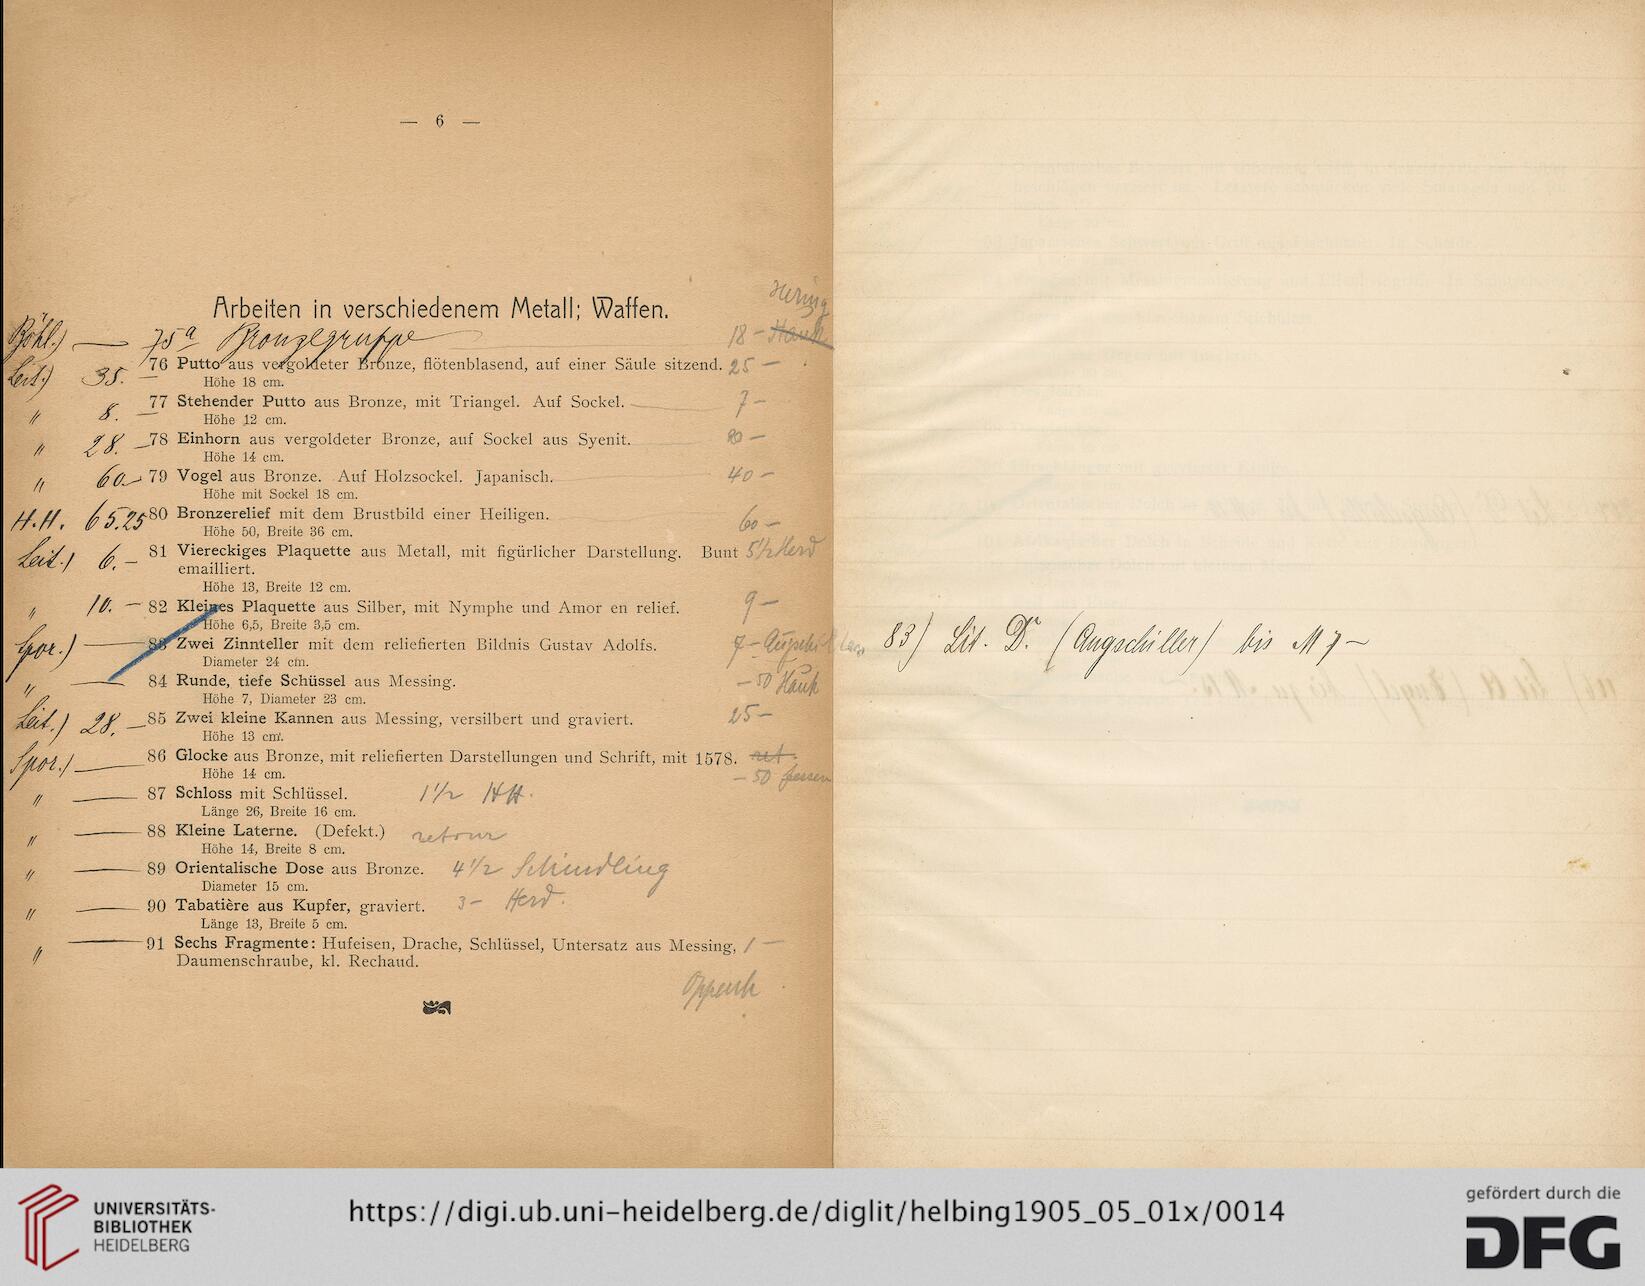 — 6 —
Arbeiten in verschiedenem Metall; Waffen.
Hering
Böhl.) — 75a Bronzegruppe 18 – Hauk
Leit.) 35. — 76 Putto aus vergoldeter Bronze, flötenblasend, auf einer Säule sitzend. 25 —
Höhe 18 cm.
" 8. — 77 Stehender Putto aus Bronze, mit Triangel. Auf Sockel. 7 –
Höhe 12 cm.
" 28. — 78 Einhorn aus vergoldeter Bronze, auf Sockel aus Syenit. 20 –
Höhe 14 cm.
" 60 — 79 Vogel aus Bronze. Auf Holzsockel. Japanisch. 40 –
Höhe mit Sockel 18 cm.
H.H. 65.25 80 Bronzerelief mit dem Brustbild einer Heiligen. 60 –
Höhe 50, Breite 36 cm.
Leit.) 6. – 81 Viereckiges Plaquette aus Metall, mit figürlicher Darstellung. Bunt 5½ Herd
emailliert.
Höhe 13, Breite 12 cm.
" 10. – 82 Kleines Plaquette aus Silber, mit Nymphe und Amor en relief. 9 –
Höhe 6,5, Breite 3,5 cm.
Spor.) — 83 Zwei Zinnteller mit dem reliefierten Bildnis Gustav Adolfs. 7 –
Diameter 24 cm.
" — 84 Runde, tiefe Schüssel aus Messing. – 50 Hauk
Höhe 7, Diameter 23 cm.
Leit.) 28. — 85 Zwei kleine Kannen aus Messing, versilbert und graviert. 25 –
Höhe 13 cm.
Spor.) — 86 Glocke aus Bronze, mit reliefierten Darstellungen und Schrift, mit 1578. ret.
Höhe 14 cm. – 50
" — 87 Schloss mit Schlüssel. 1½ HH.
Länge 26, Breite 16 cm.
" — 88 Kleine Laterne. (Defekt.) retour
Höhe 14, Breite 8 cm.
" — 89 Orientalische Dose aus Bronze. 4½ Schindling
Diameter 15 cm.
" — 90 Tabatière aus Kupfer, graviert. 3 – Herd.
Länge 13, Breite 5 cm.
" — 91 Sechs Fragmente: Hufeisen, Drache, Schlüssel, Untersatz aus Messing, 1 —
Daumenschraube, kl. Rechaud.
Oppenh
83) Lit. Dr. (Augschiller) bis M 7 –
UNIVERSITÄTS-
BIBLIOTHEK
HEIDELBERG
https://digi.ub.uni-heidelberg.de/diglit/helbing1905_05_01x/0014
gefördert durch die
DFG